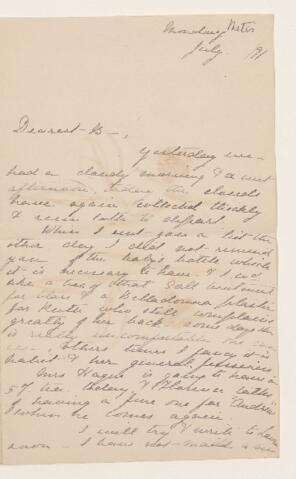 Monday Notes
July /91
Dearest B—,
Yesterday we
had a cloudy morning & a wet
afternoon, today the clouds
have again collected thickly
& seem loth to depart.
When I sent you a list the
other day I did not remind
you of the baby's bottle which
it is necessary to have. & I w'd
like a box of that Salt ointment
for & a Belladonna plaster
for who still complains
greatly of her back. some days she
is really uncomfortable one can
see. Others times I fancy it is
habit & her general
Mrs Hague is going to have
5 Tea today & Florence talks
of having a fire one for
when he comes again.
I will try & write to
soon - I have not